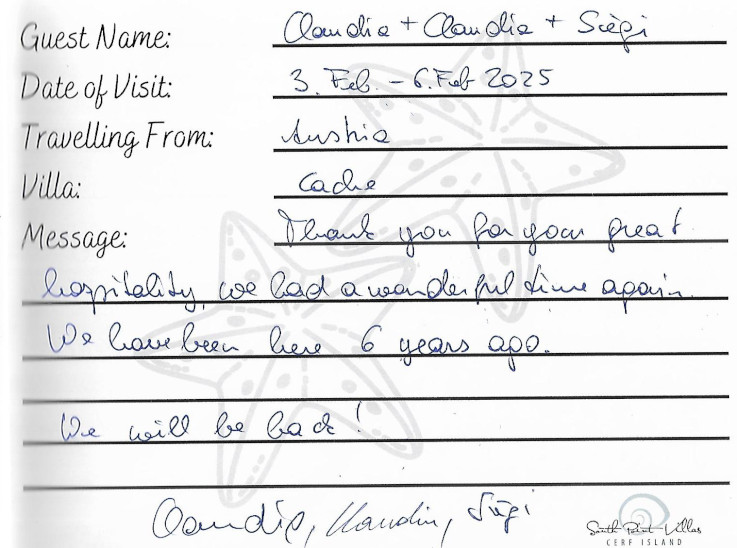 Guest Name: Claudia + Claudia + Siegi
Date of Visit: 3. Feb. - 6. Feb 2025
Travelling From: Austria
Villa: Cache
Message: Thank you for your great
hospitality, we had a wonderful time again.
We have been here 6 years ago.
We will be back!
Claudia, Claudia, Siegi
South Point Villas
CERF ISLAND